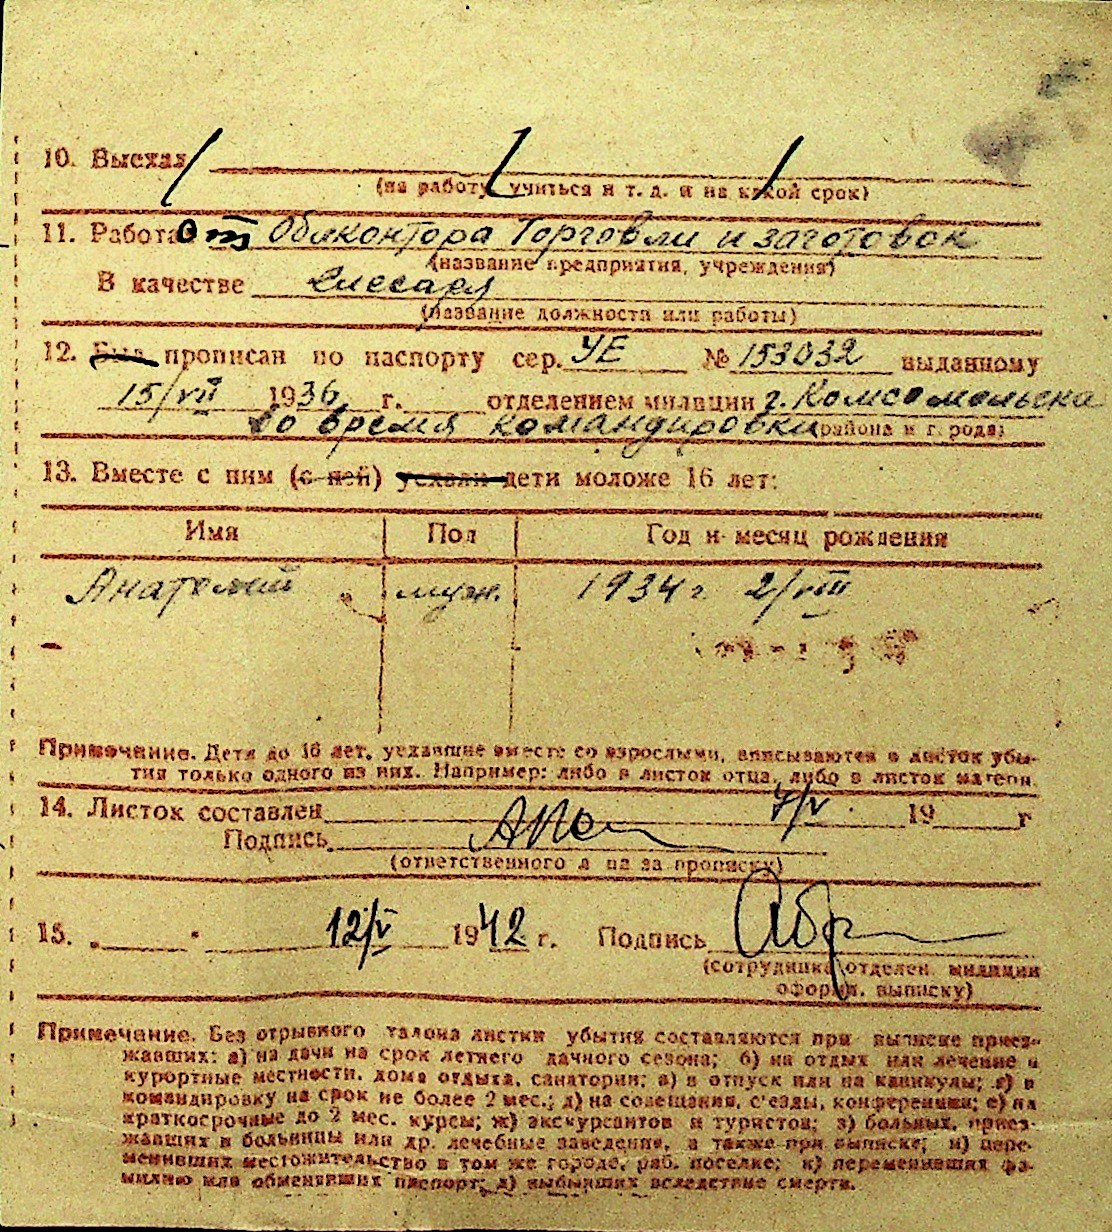 10. Выехал
(на работу, учиться и т. д. и на какой срок)
11. Работа от Облконтора Торговли и заготовок
(название предприятия, учреждения)
В качестве слесаря
(название должности или работы)
12. Был прописан по паспорту сер. УЕ № 153032 выданному
15/VII 1936 г. отделением милиции г. Комсомольска
во время командировки (района и города)
13. Вместе с ним (с ней) уехали дети моложе 16 лет:
Имя Пол Год и месяц рождения
Анатолий муж. 1934 г 2/VIII
Примечание. Дети до 16 лет, уехавшие вместе со взрослыми, вписываются в листок убы-
тия только одного из них. Например: либо в листок отца, либо в листок матери.
14. Листок составлен 7/V 19 г
Подпись
(ответственного л ца за прописку)
15. 12/V 1942 г. Подпись
(сотрудника отделен. милиции
оформ. выписку)
Примечание. Без отрывного талона листки убытия составляются при выписке приез-
жавших: а) на дачи на срок летнего дачного сезона; б) на отдых или лечение в
курортные местности, дома отдыха, санатории; в) в отпуск или на каникулы; г) в
командировку на срок не более 2 мес.; д) на совещания, с'езды, конференции; е) на
краткосрочные до 2 мес. курсы; ж) экскурсантов и туристов; з) больных, приез-
жавших в больницы или др. лечебные заведения, а также при выписке; и) пере-
менивших местожительство в том же городе, раб. поселке; к) переменивших фа-
милию или обменявших паспорт; л) выбывших вследствие смерти.